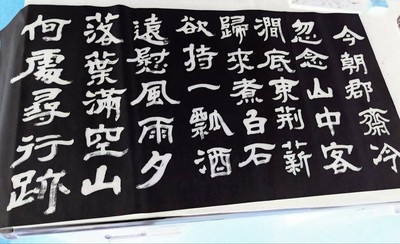 今朝郡齋冷
忽念山中客
澗底束荆薪
歸來煮白石
欲持一瓢酒
遠慰風雨夕
落葉滿空山
何處尋行跡